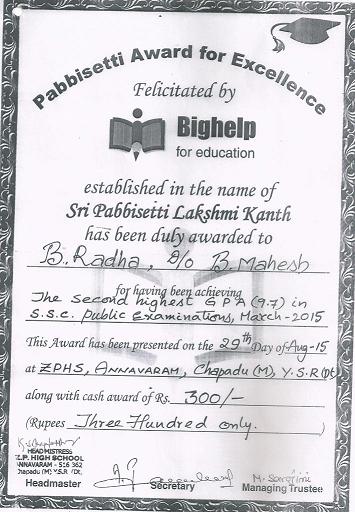 Pabbisetti Award for Excellence
Felicitated by
Bighelp
for education
established in the name of
Sri Pabbisetti Lakshmi Kanth
has been duly awarded to
B. Radha, D/o B. Mahesh
for having been achieving
The second highest G P A (9.7) in
S.S.C. public Examinations, March-2015
This Award has been presented on the 29th Day of Aug-15
at ZPHS, ANNAVARAM, Chapadu (M), Y.S.R (Dt)
along with cash award of Rs. 300/-
(Rupees Three Hundred only. )
HEADMISTRESS
Z.P. HIGH SCHOOL
ANNAVARAM - 516 362
Chapadu (M) Y.S.R (Dt.
Headmaster Secretary Managing Trustee